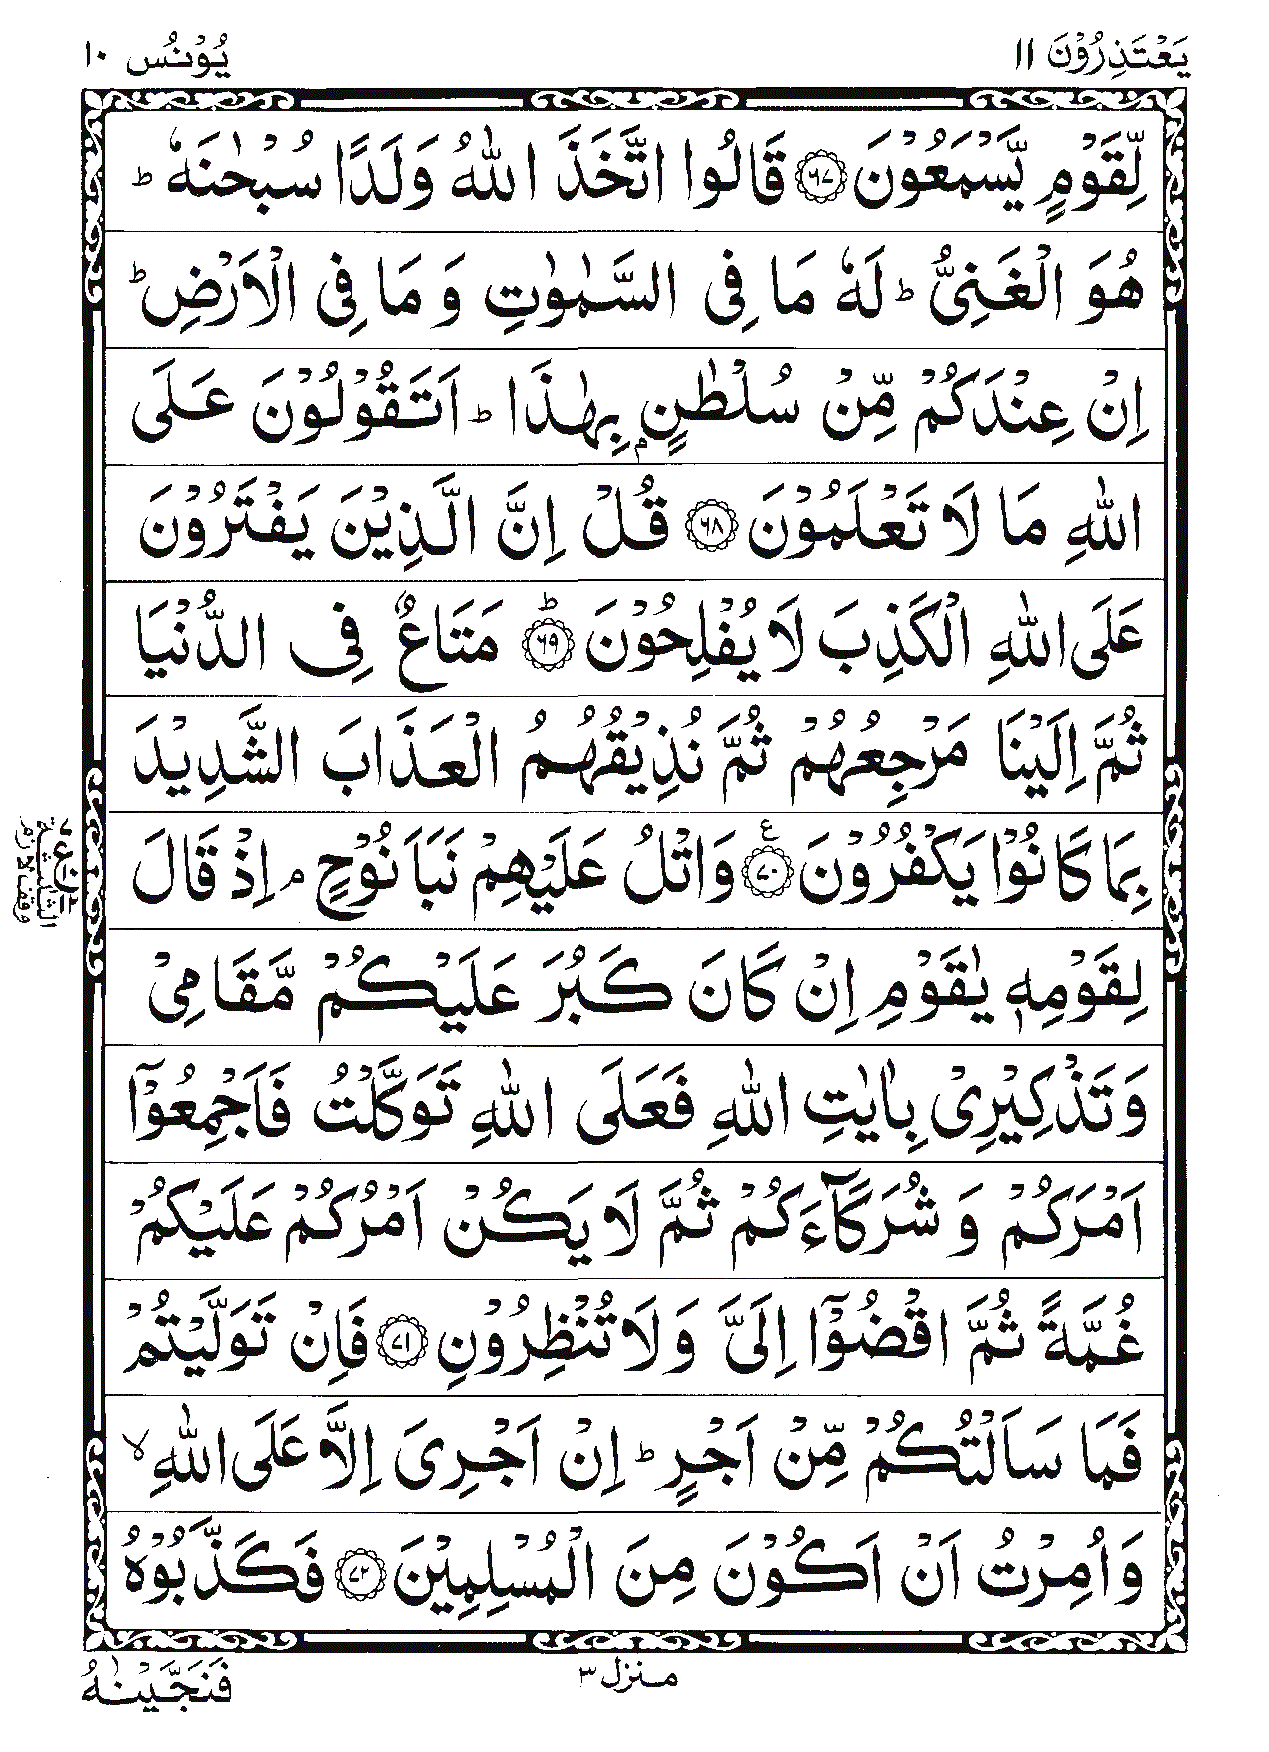 يَعْتَذِرُوْنَ ١١
يُوْنُس ١٠
لِّقَوْمٍ يَّسْمَعُوْنَ ﴿۶۷﴾ قَالُوا اتَّخَذَ اللّٰهُ وَلَدًا سُبْحٰنَهٗ ؕ
هُوَ الْغَنِیُّ ؕ لَهٗ مَا فِی السَّمٰوٰتِ وَ مَا فِی الْاَرْضِ ؕ
اِنْ عِنْدَكُمْ مِّنْ سُلْطٰنٍۭ بِهٰذَا ؕ اَتَقُوْلُوْنَ عَلَی
اللّٰهِ مَا لَا تَعْلَمُوْنَ ﴿۶۸﴾ قُلْ اِنَّ الَّذِیْنَ یَفْتَرُوْنَ
عَلَی اللّٰهِ الْكَذِبَ لَا یُفْلِحُوْنَ ﴿۶۹﴾ؕ مَتَاعٌ فِی الدُّنْیَا
ثُمَّ اِلَیْنَا مَرْجِعُهُمْ ثُمَّ نُذِیْقُهُمُ الْعَذَابَ الشَّدِیْدَ
بِمَا كَانُوْا یَكْفُرُوْنَ ﴿۷۰﴾ع وَاتْلُ عَلَیْهِمْ نَبَاَ نُوْحٍ ۘ اِذْ قَالَ
لِقَوْمِهٖ یٰقَوْمِ اِنْ كَانَ كَبُرَ عَلَیْكُمْ مَّقَامِیْ
وَتَذْكِیْرِیْ بِاٰیٰتِ اللّٰهِ فَعَلَی اللّٰهِ تَوَكَّلْتُ فَاَجْمِعُوْۤا
اَمْرَكُمْ وَ شُرَكَآءَكُمْ ثُمَّ لَا یَكُنْ اَمْرُكُمْ عَلَیْكُمْ
غُمَّةً ثُمَّ اقْضُوْۤا اِلَیَّ وَ لَا تُنْظِرُوْنِ ﴿۷۱﴾ فَاِنْ تَوَلَّیْتُمْ
فَمَا سَاَلْتُكُمْ مِّنْ اَجْرٍ ؕ اِنْ اَجْرِیَ اِلَّا عَلَی اللّٰهِ ۙ
وَاُمِرْتُ اَنْ اَكُوْنَ مِنَ الْمُسْلِمِیْنَ ﴿۷۲﴾ فَكَذَّبُوْهُ
منزل ۳
فَنَجَّیْنٰهُ